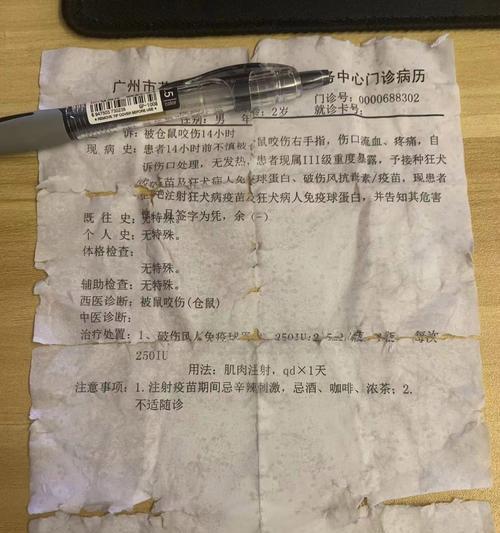 广州市
务中心门诊病历
门诊号：0000688302
就诊卡号：
性别：男 年
：2岁
诉：被仓鼠咬伤14小时
现 病 史：患者14小时前不慎被
鼠咬伤右手指，伤口流血、疼痛，自
诉伤口处理，无发热，
患者现属III级重度暴露，予接种狂犬
疫苗及狂犬病人免疫球蛋白、破伤风抗毒素/疫苗，现患者
注射狂犬病疫苗及狂犬病人免疫球蛋白，并告知其危害
签字为凭，余（-）
既 往 史：无特殊。
个 人 史：无特殊。
体格检查：
无特殊。
辅助检查：无特殊。
西医诊断：被鼠咬伤(仓鼠)
中医诊断：
治疗处置：1、破伤风人免疫球 250IU: 每次
250IU
用法：肌肉注射，qd×1天
注意事项：1.注射疫苗期间忌辛辣刺激，忌酒、咖啡、浓茶；2.
不适随诊